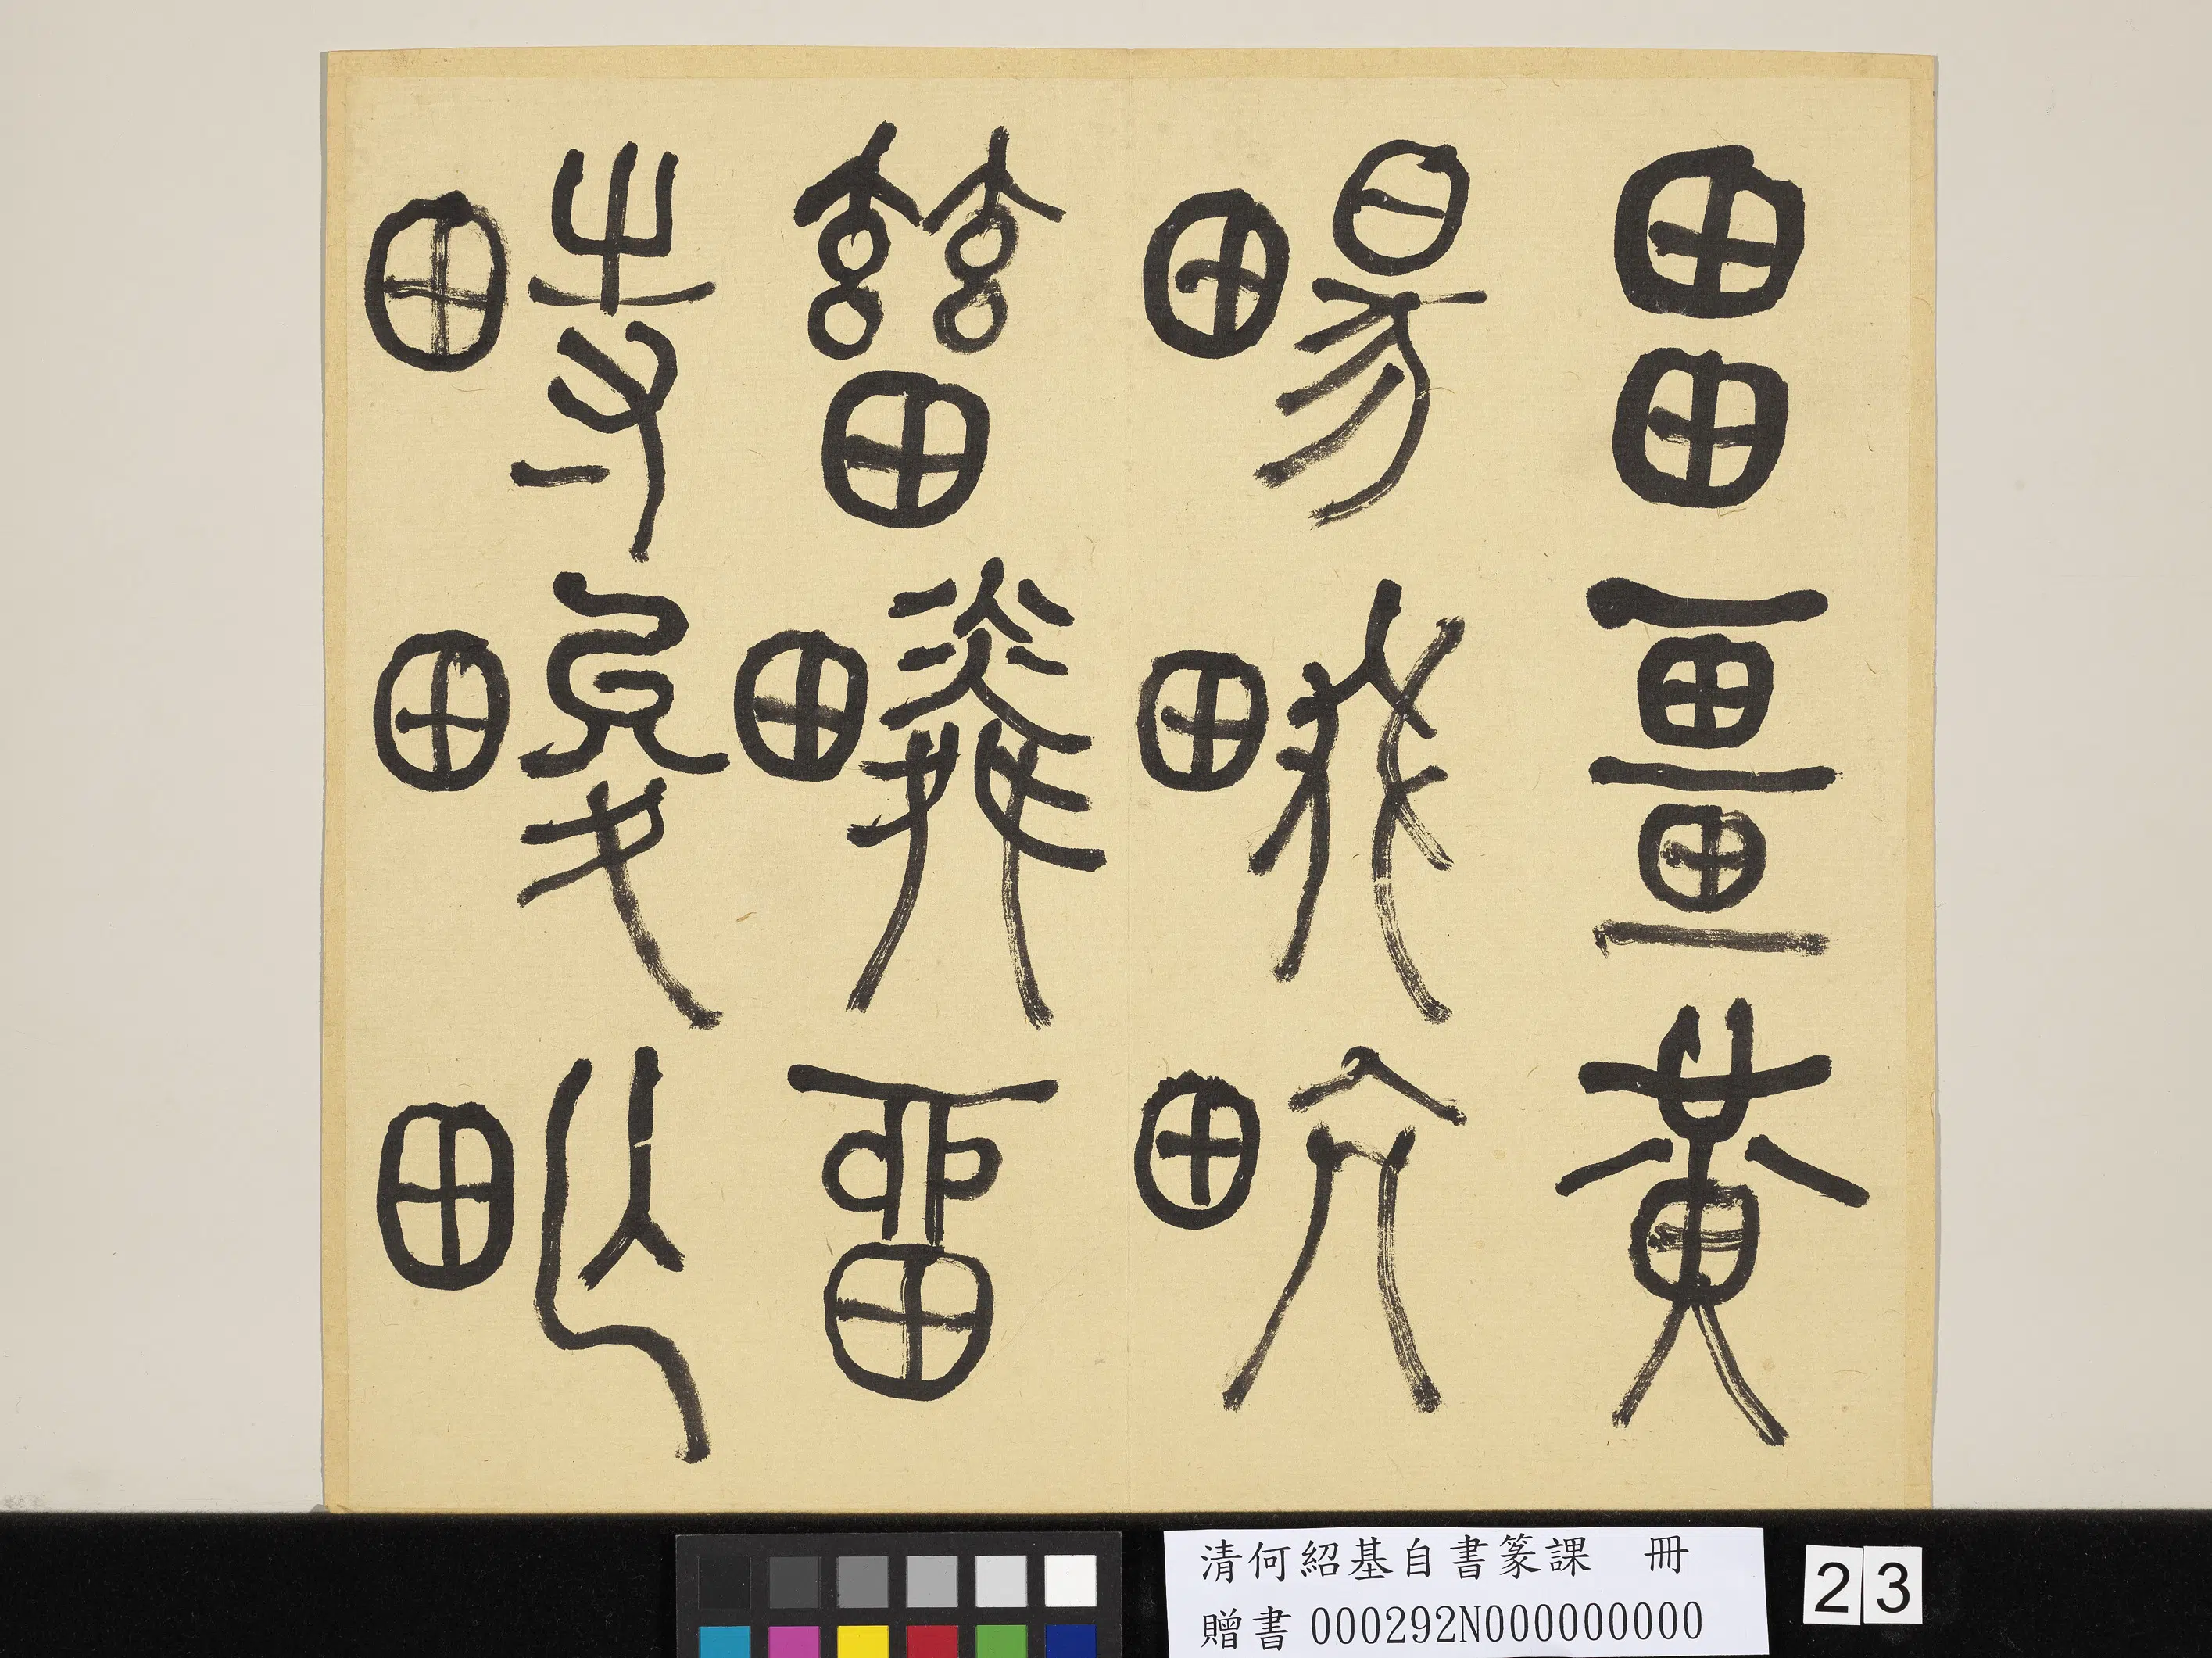 畕畺黃
畼㽘
𤲸疄留
畤畯甿
清何紹基自書篆課　冊
贈書000292N000000000
23